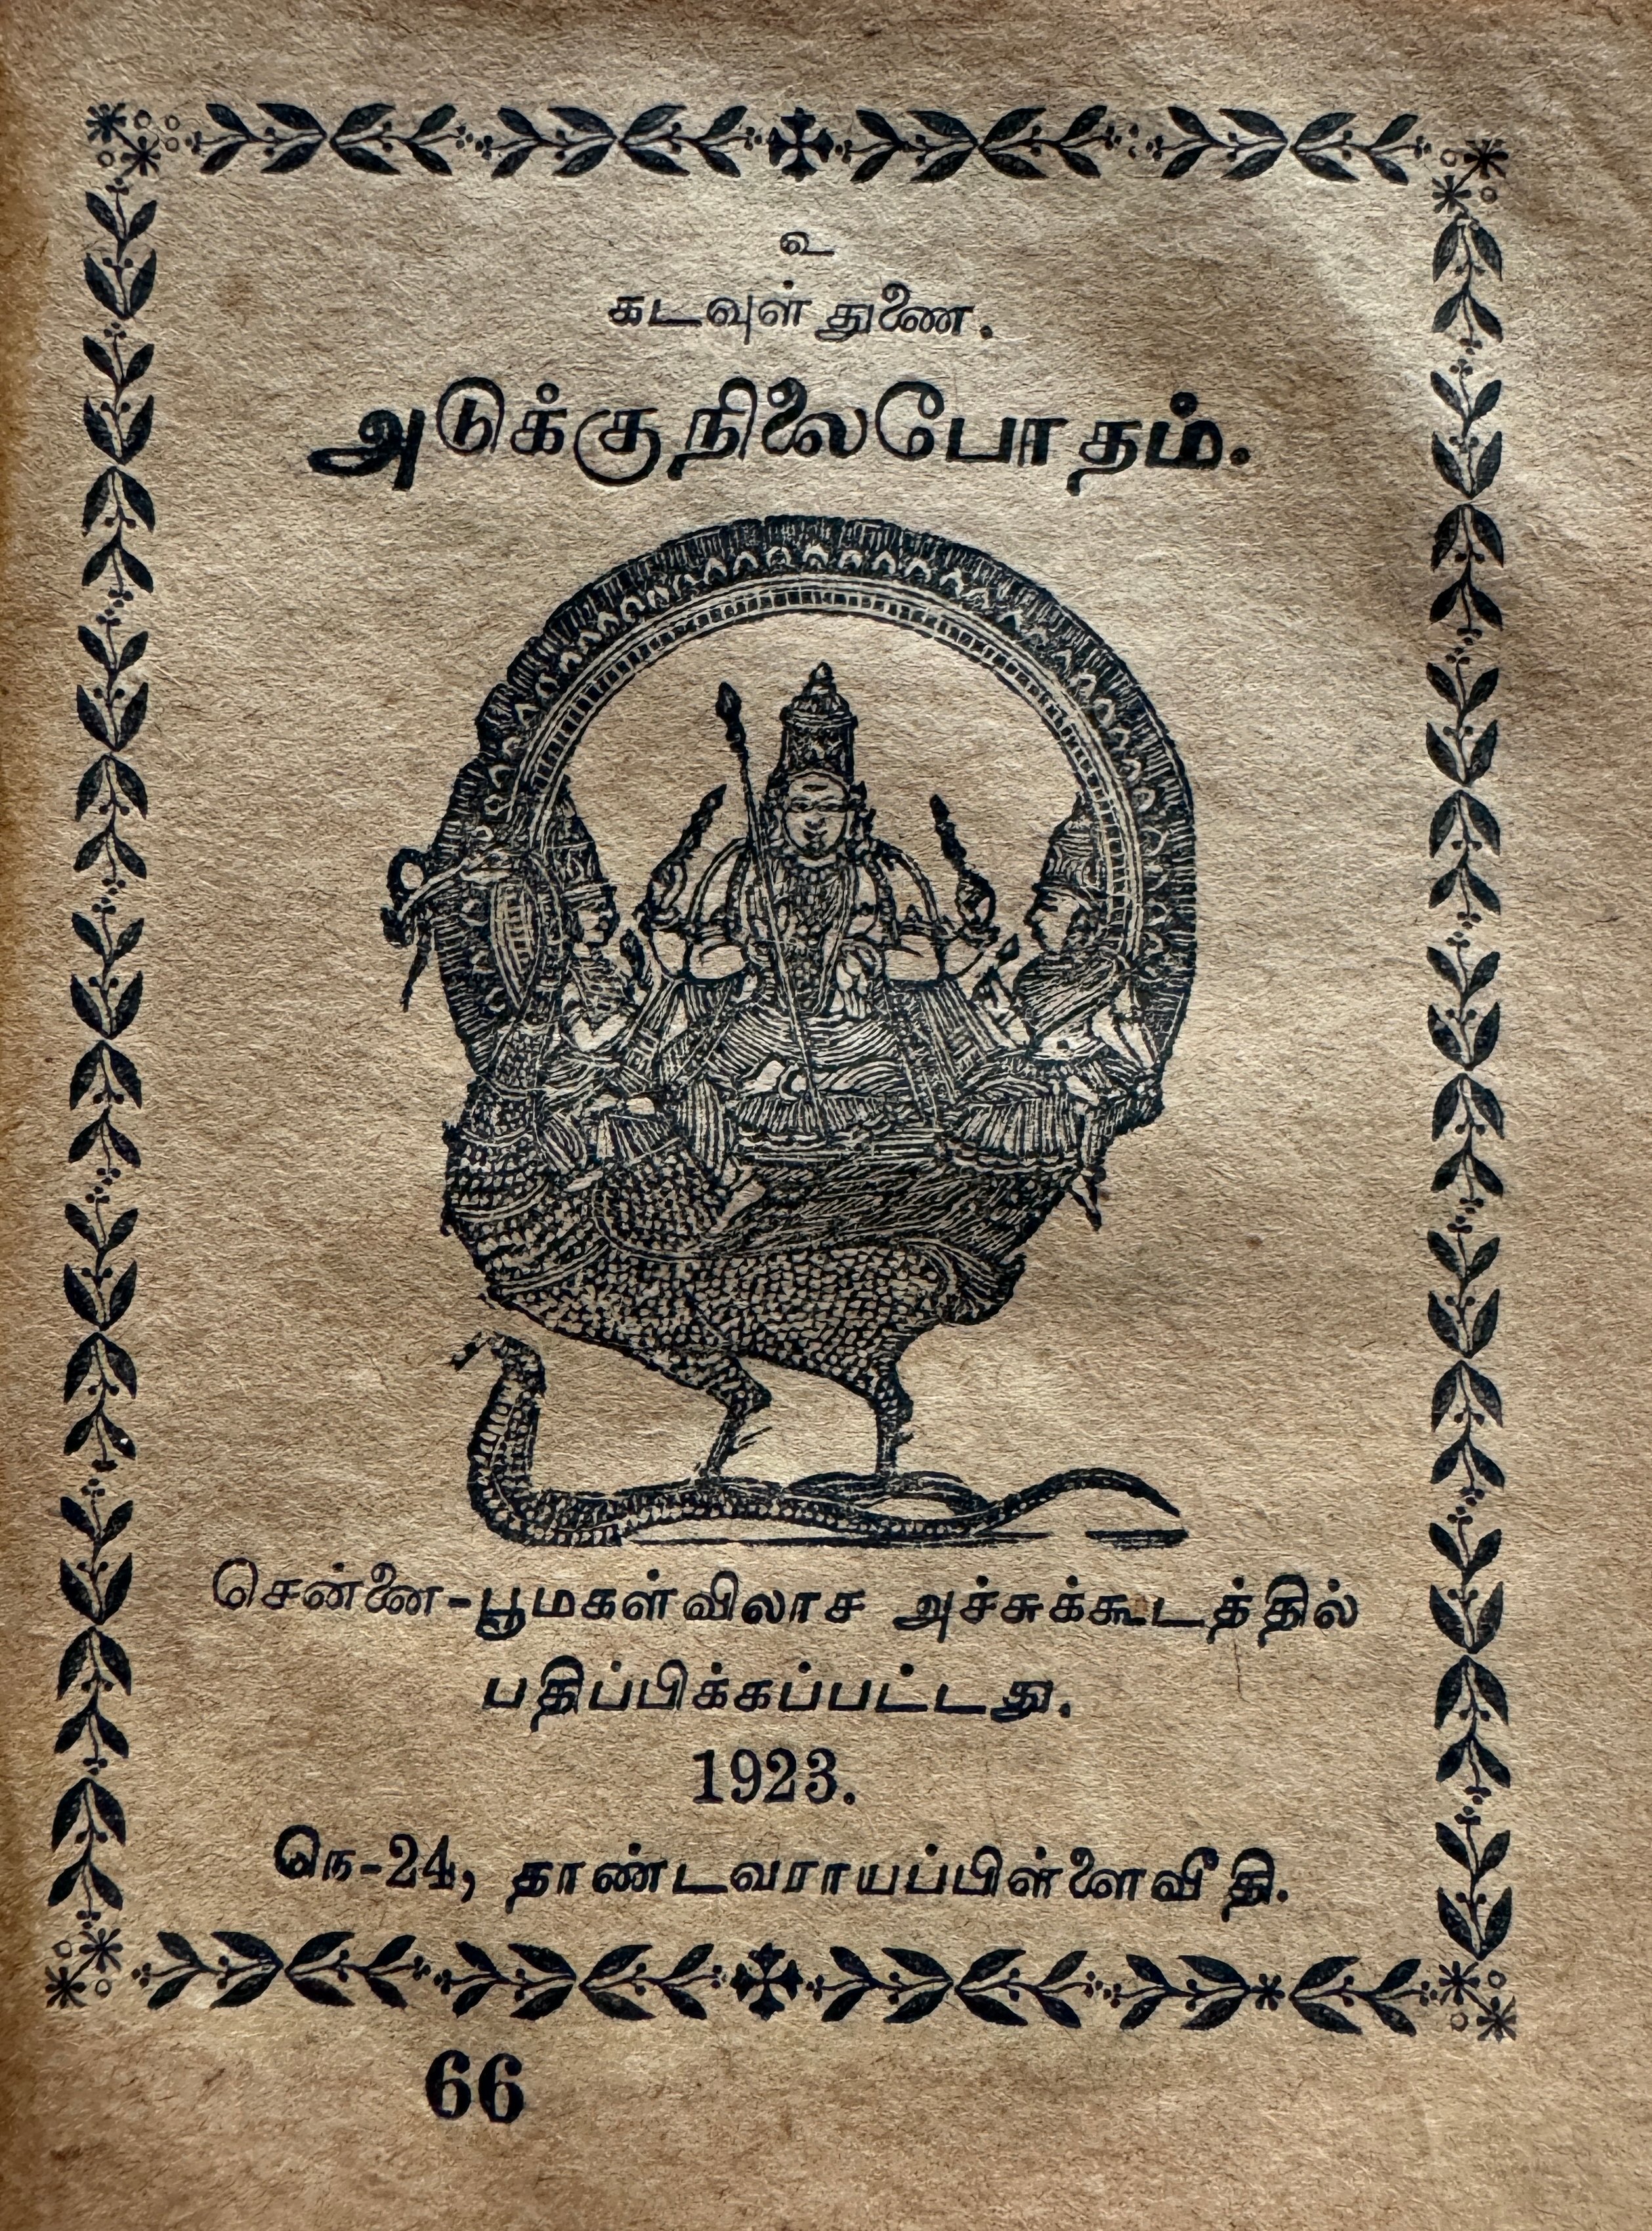 உ
கடவுள் துணை.
அடுக்குநிலைபோதம்.
சென்னை-பூமகள்விலாச அச்சுக்கூடத்தில்
பதிப்பிக்கப்பட்டது.
1923.
நெ-24, தாண்டவராயப்பிள்ளைவீதி.
66